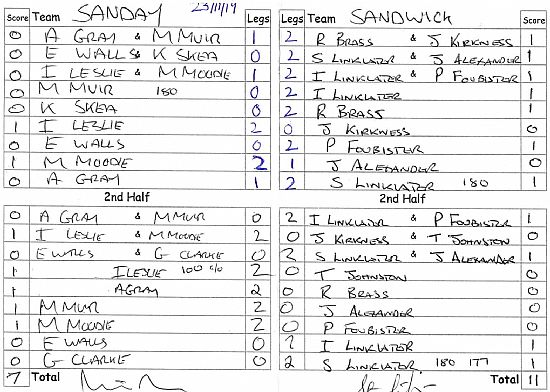 Score Team SANDAY 23/11/19 Legs Legs Team SANDWICK Score
0 A GRAY & M MUIR 1 2 R BRASS & J KIRKNESS 1
0 E WALLS & K SKEA 0 2 S LINKLATER & J ALEXANDER 1
0 I LESLIE & M MOODIE 1 2 I LINKLATER & P FOUBISTER 1
0 M MUIR 180 0 2 I LINKLATER 1
0 K SKEA 0 2 R BRASS 1
1 I LESLIE 2 0 J KIRKNESS 0
0 E WALLS 0 2 P FOUBISTER 1
1 M MOODIE 2 1 J ALEXANDER 0
0 A GRAY 1 2 S LINKLATER 180 1
2nd Half 2nd Half
0 A GRAY & M MUIR 0 2 I LINKLATER & P FOUBISTER 1
1 I LESLIE & M MOODIE 2 0 J KIRKNESS & T JOHNSTON 0
0 E WALLS & G CLARKE 0 2 S LINKLATER & J ALEXANDER 1
1 I LESLIE 100 c/o 2 0 T JOHNSTON 0
1 A GRAY 2 0 R BRASS 0
1 M MUIR 2 0 J ALEXANDER 0
1 M MOODIE 2 0 P FOUBISTER 0
0 E WALLS 0 2 I LINKLATER 1
0 G CLARKE 0 2 S LINKLATER 180 177 1
7 Total Total 11